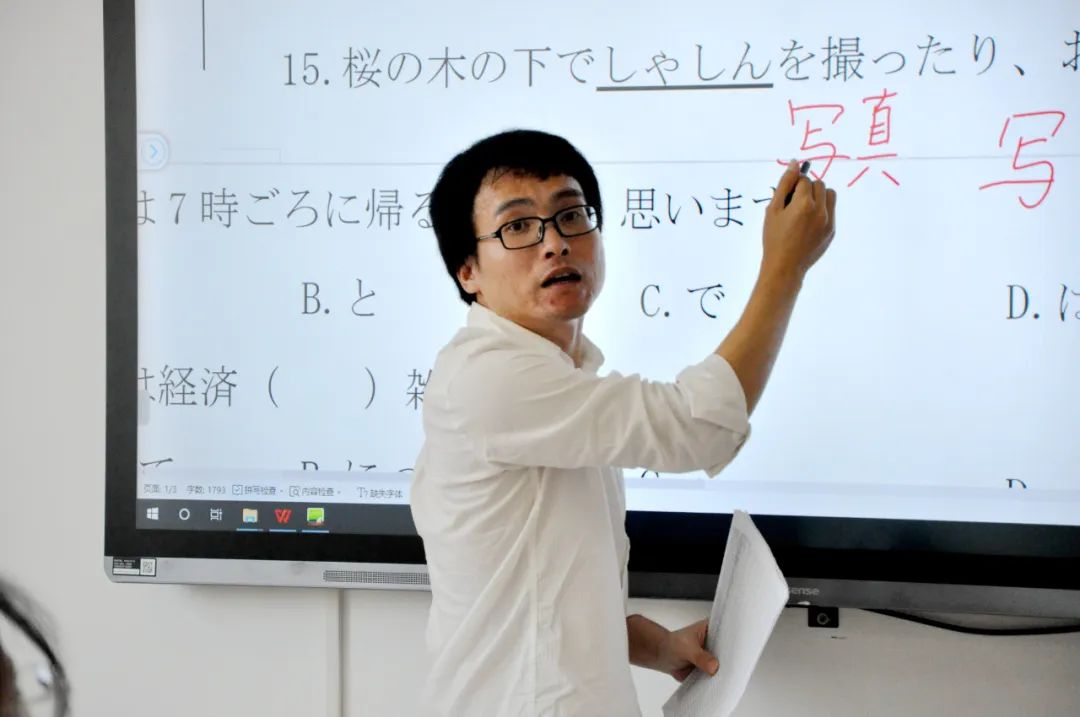 15. 桜の木の下でしゃしんを撮ったり、
写真 写
は7時ごろに帰る 思います
B. と C. で D. は
は経済（ ）雑
页面: 1/3 字数: 1793 拼写检查 内容检查 缺失字体
sense